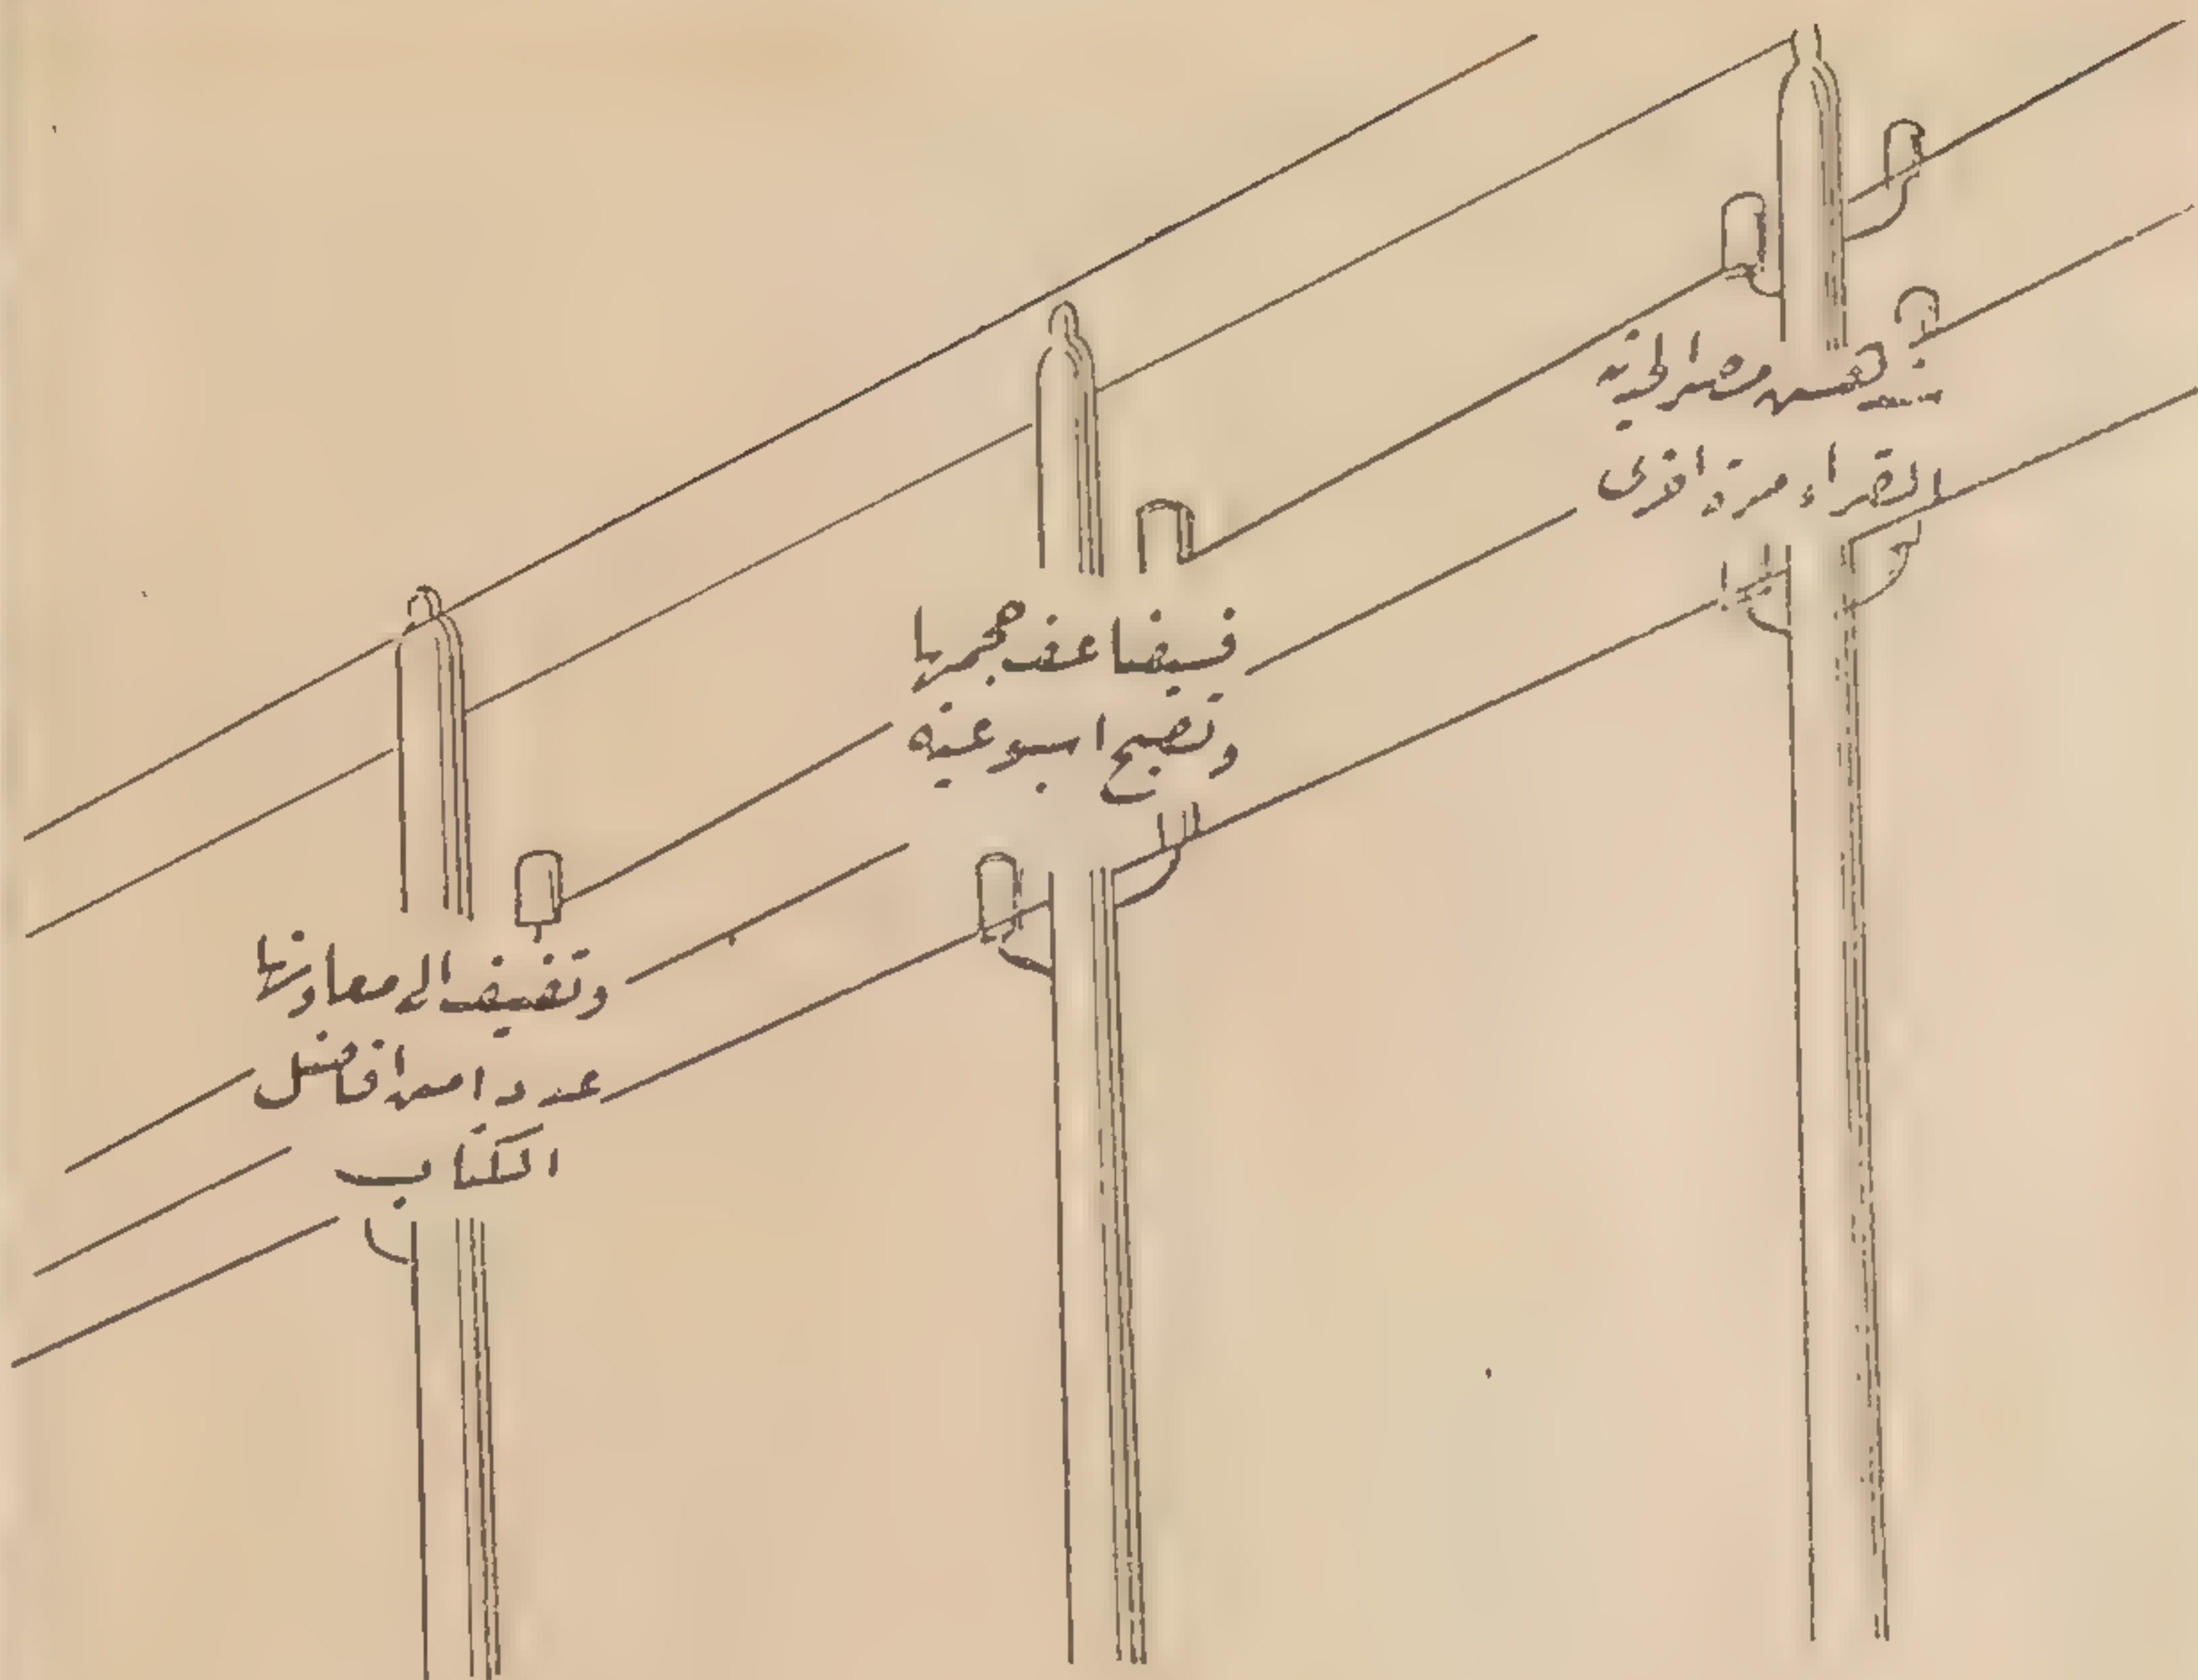 تدهش مصر الحديثة
القراء مرة اخرى
فيضاعف حجمها
وتصبح اسبوعية
وتضيف الى معاونيها
عددا من افاضل
الكتاب